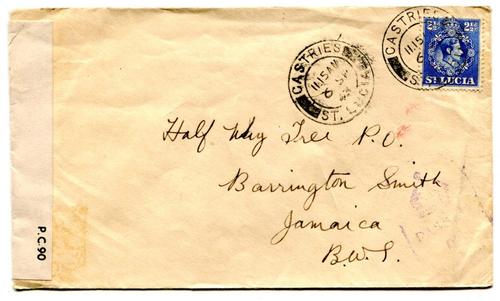 CASTRIES
11:15AM
ST. LUCIA
CASTRIES
11:15
2½ 2½
ST LUCIA
Half Way Tree P.O.
Barrington Smith
Jamaica
B.W.I.
P.C.90